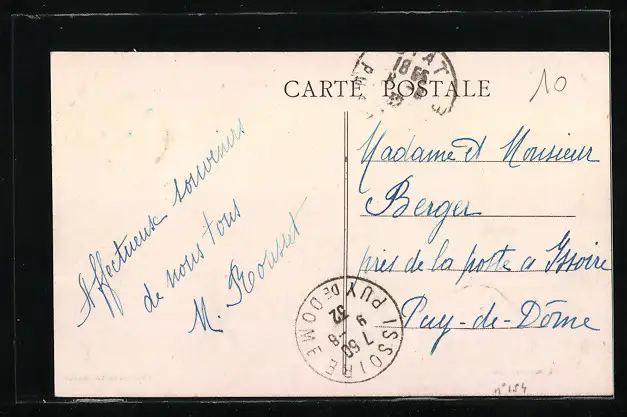 CARTE POSTALE
10
Affectueux souvenirs
de nous tous
M. Rousset
Madame et Monsieur
Berger
près de la poste a Issoire
Puy-de-Dôme
ISSOIRE
PUY DE DOME
7 50
9 -8
32
n° 154